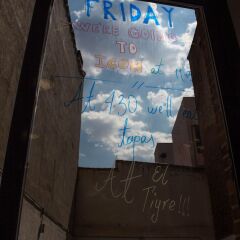 FRIDAY
WE'RE GOING
TO
at
At 430 we'll eat
tapas
At El
Tigre!!!